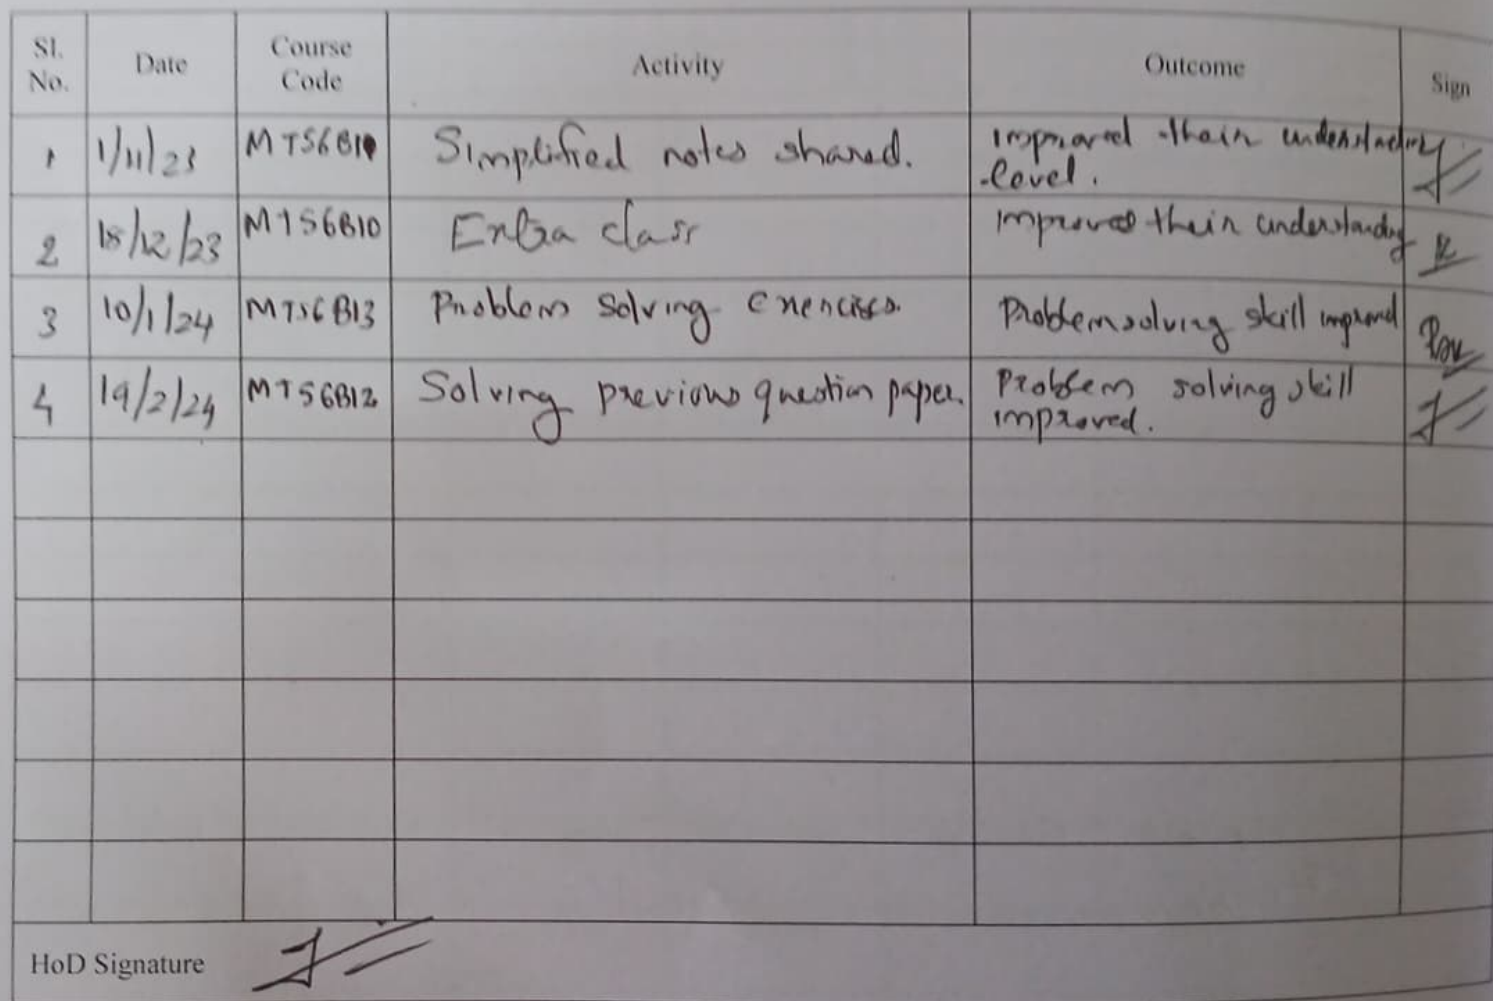 Sl. No. Date Course Code Activity Outcome Sign
1 1/11/23 MTS6B10 Simplified notes shared. Improved their understanding level.
2 18/12/23 MTS6B10 Extra class Improved their understanding
3 10/1/24 MTS6B13 Problem solving exercises. Problem solving skill improved
4 19/2/24 MTS6B12 Solving previous question paper. Problem solving skill improved.
HoD Signature